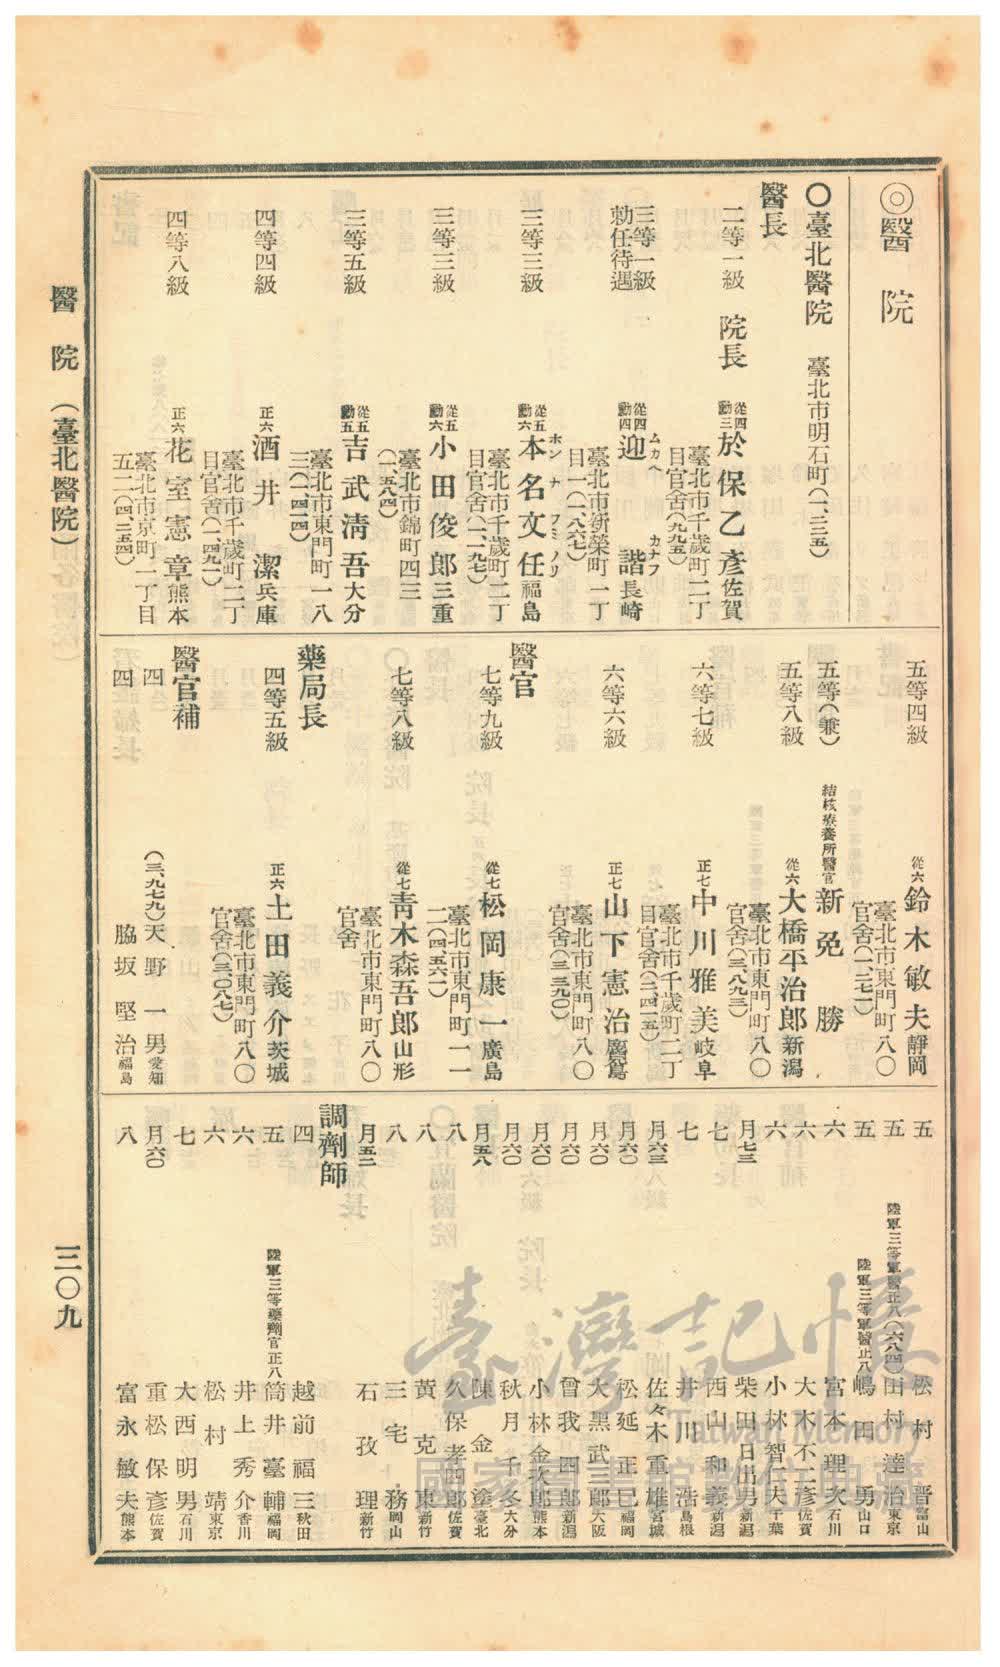 ◎醫院
〇臺北醫院 臺北市明石町(二、三三五)
二等一級 院長 從四勳三 於保乙彥 佐賀
臺北市千歲町二丁
目官舍(九九五)
醫長
三等一級
勅任待遇
從四勳四 迎 諧 長崎
ムカヘ カナフ
臺北市新榮町一丁
目一(二、八六七)
三等三級 從五勳六 本名文任 福島
ホンナ フミノリ
臺北市千歲町二丁
目官舍(二、一九七)
三等三級 從五勳六 小田俊郎 三重
臺北市錦町四三
(一、五八四)
三等五級 從五勳五 吉武淸吾 大分
臺北市東門町一八
三(一、四一四)
四等四級 正六 酒井潔 兵庫
臺北市千歲町二丁
目官舍(二、四九一)
四等八級 正六 花室憲章 熊本
臺北市京町一丁目
五二(四、三五四)
五等四級 從六 鈴木敏夫 靜岡
臺北市東門町八〇
官舍(一、二七一)
五等(兼) 結核療養所醫官 新免勝
五等八級 從六 大橋平治郎 新潟
臺北市東門町八〇
官舍(三、八九三)
六等七級 正七 中川雅美 岐阜
臺北市千歲町二丁
目官舍(二、四一五)
六等六級 正七 山下憲治
臺北市東門町八〇
官舍(三、三九〇)
醫官
七等九級 從七 松岡康一 廣島
臺北市東門町一一
二(四、五六一)
七等八級 從七 靑木森吾郎 山形
臺北市東門町八〇
官舍
藥局長
四等五級 正六 土田義介 茨城
臺北市東門町八〇
官舍(三、〇八七)
醫官補
四 (三、九七九)天野一男 愛知
四 脇坂堅治 福島
五 松村晋 富山
五 陸軍三等軍醫正八(六八四)田村達治 東京
五 陸軍三等軍醫正八 嶋田勇 山口
六 宮本理次 石川
六 大木不二彥 佐賀
六 小林智仁夫 千葉
月七三 柴田日出男 新潟
七 西山和義 新潟
七 井川浩 島根
月六三 佐々木重雄 宮城
月六〇 松延正巳 福岡
月六〇 大黑武二郎 大阪
月六〇 曾我四郎 新潟
月六〇 小林金次郎 熊本
月六〇 秋月千冬 大分
月五八 陳金塗 臺北
八 久保孝四郎 佐賀
八 黃克東 新竹
八 三宅務 岡山
月五二 石孜理 新竹
調劑師
四 越前福三 秋田
五 陸軍三等藥劑官正八 筒井臺輔 福岡
六 井上秀介 香川
六 松村靖 東京
七 大西明男 石川
月六〇 重松保彥 佐賀
八 富永敏夫 熊本
醫院 (臺北醫院)
三〇九
臺灣記憶
Taiwan Memory
國家圖書館數位典藏